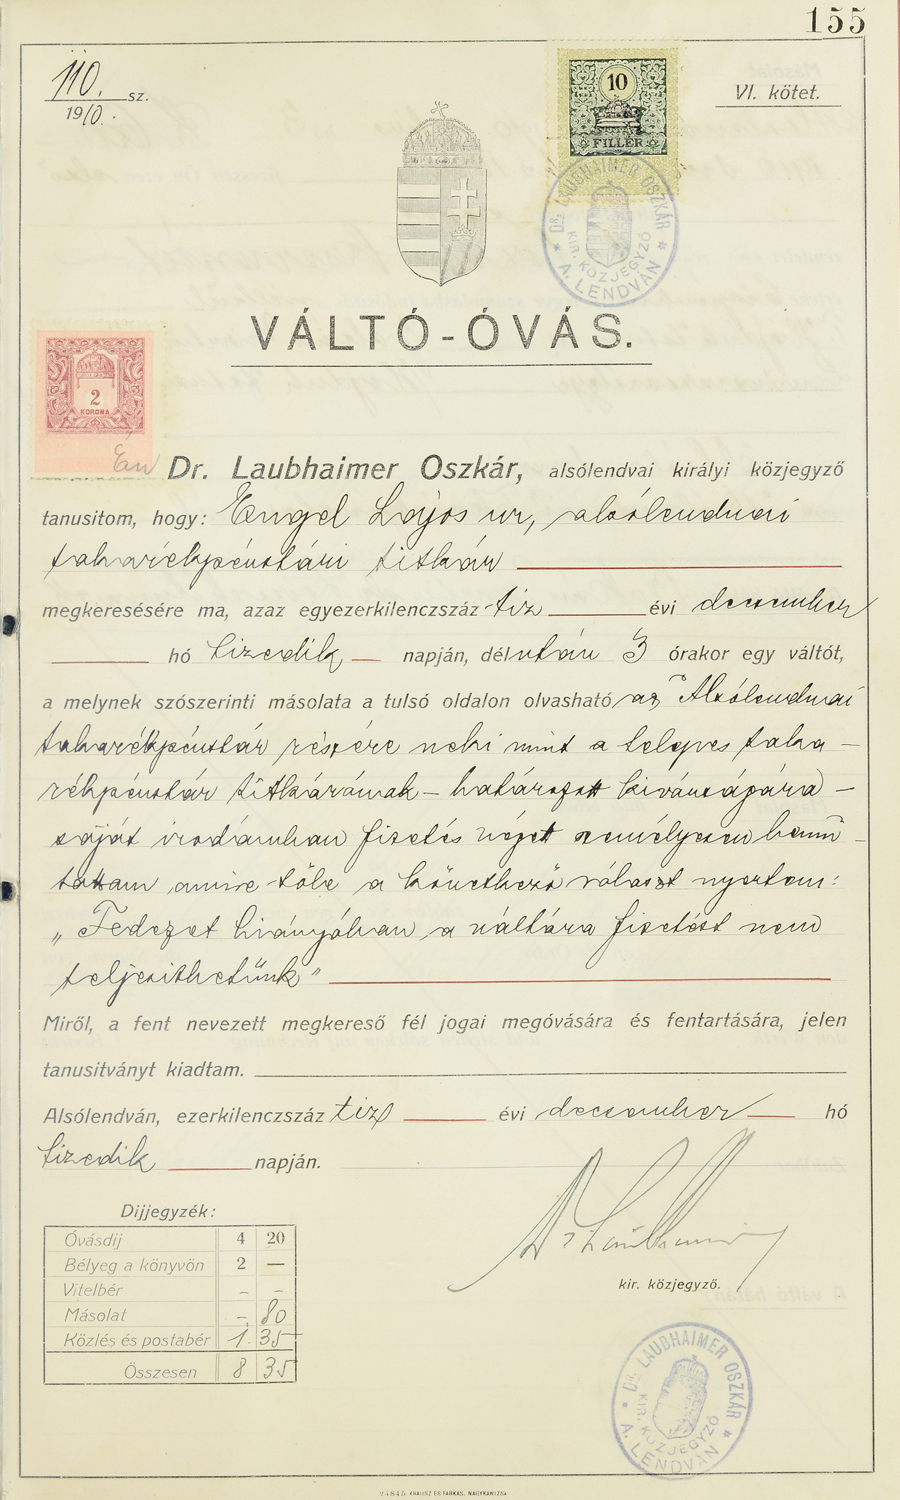 155
110. sz.
1910.
VI. kötet.
10
FILLÉR
DR. LAUBHAIMER OSZKÁR
KIR. KÖZJEGYZŐ
* A. LENDVÁN *
VÁLTÓ-ÓVÁS.
2
KORONA
Én Dr. Laubhaimer Oszkár, alsólendvai királyi közjegyző
tanusitom, hogy: Engel Lajos ur, alsólendvai
takarékpénztári titkár
megkeresésére ma, azaz egyezerkilenczszáz tiz évi december
hó tizedik napján, délután 3 órakor egy váltót,
a melynek szószerinti másolata a tulsó oldalon olvasható az Alsólendvai
takarékpénztár részére neki mint a telepes taka-
rékpénztár titkárának - határozott kivánságára -
saját irodámban fizetés végett személyesen bemu-
tattam amire tőle a következő választ nyertem:
„Fedezet hiányában a váltóra fizetést nem
teljesithetünk"
Miről, a fent nevezett megkereső fél jogai megóvására és fentartására, jelen
tanusitványt kiadtam.
Alsólendván, ezerkilenczszáz tiz évi december hó
tizedik napján.
Dijjegyzék:
Óvásdij 4 20
Bélyeg a könyvön 2 —
Vitelbér - -
Másolat -. 80
Közlés és postabér 1. 35
Összesen 8 35
kir. közjegyző.
DR. LAUBHAIMER OSZKÁR
KIR. KÖZJEGYZŐ
* A. LENDVÁN *
KRAUSZ ÉS FARKAS, NAGYKANIZSA